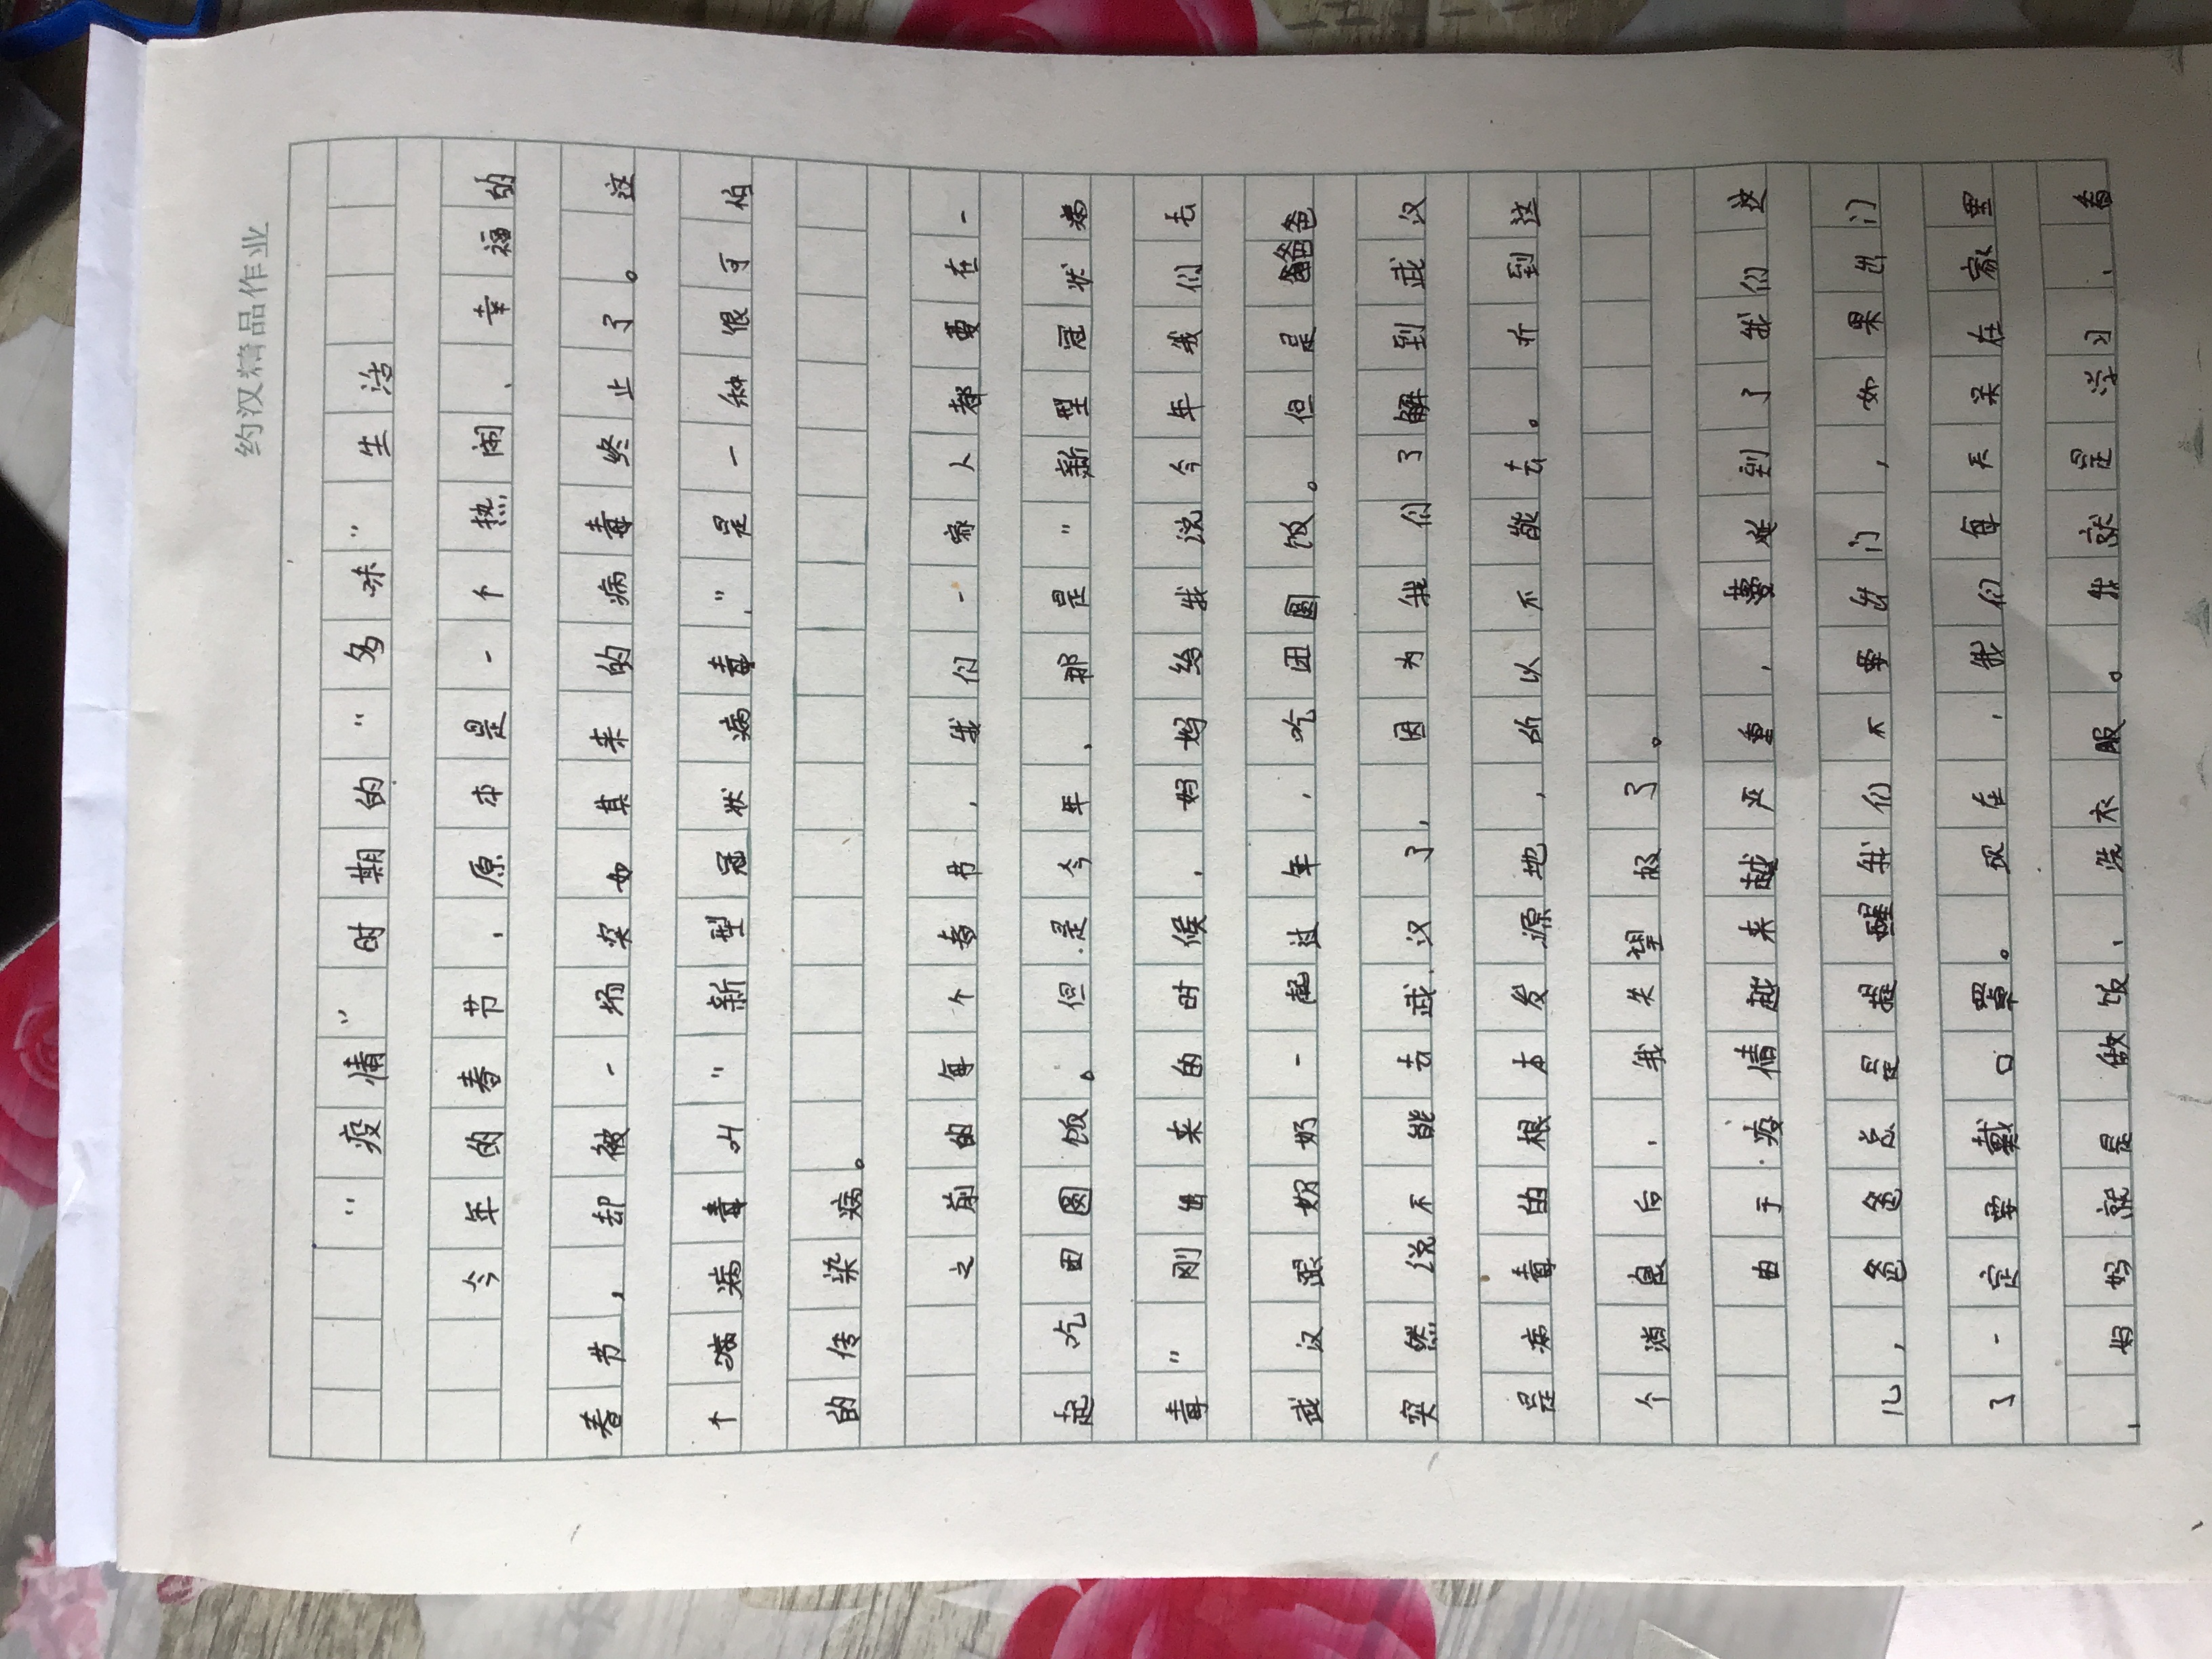 约汉精品作业
“疫情”时期的“多味”生活
今年的春节，原本是一个热闹、幸福的
春节，却被一场突如其来的病毒终止了。这
个病病毒叫“新型冠状病毒”是一种很可怕
的传染病。
之前的每个春节，我们一家人都要在一
起吃团圆饭。但是今年，那是“新型冠状病
毒”刚出来的时候，妈妈给我说今年我们去
武汉跟奶奶一起过年，吃团圆饭。但是爸
突然说不能去武汉了，因为我们了解到武汉
是病毒的根本发源地，所以不能去。听到这
个消息后，我失望极了。
由于疫情越来越严重，蔓延到了我们这
儿，爸爸总是提醒我们不要出门，如果出门
了一定要戴口罩。现在，我们每天呆在家里，
妈妈就是做饭、洗衣服。我就是学习、看